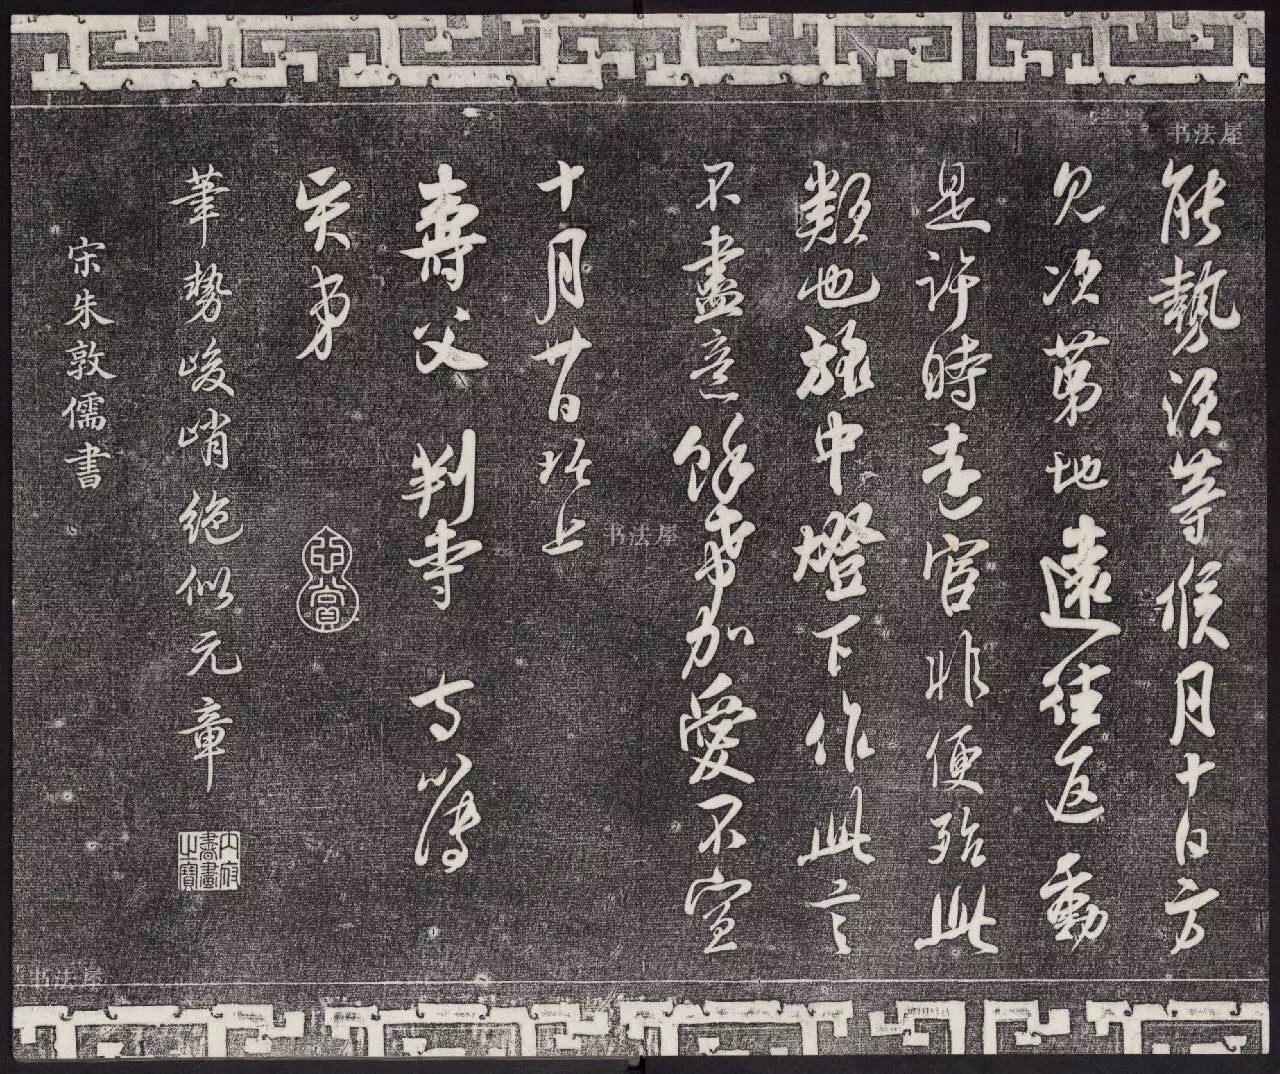 能勢須等候月十日方
見次第地遠往返動
是許時遠官非便殆此
類也中燈下作此言
不盡意餘希加愛不宣
十月廿日琚上
壽父 判寺 寺簿
弟
珍賞
筆勢峻峭絶似元章
內府書畫之寶
宋朱敦儒書
书法屋
书法屋
书法屋